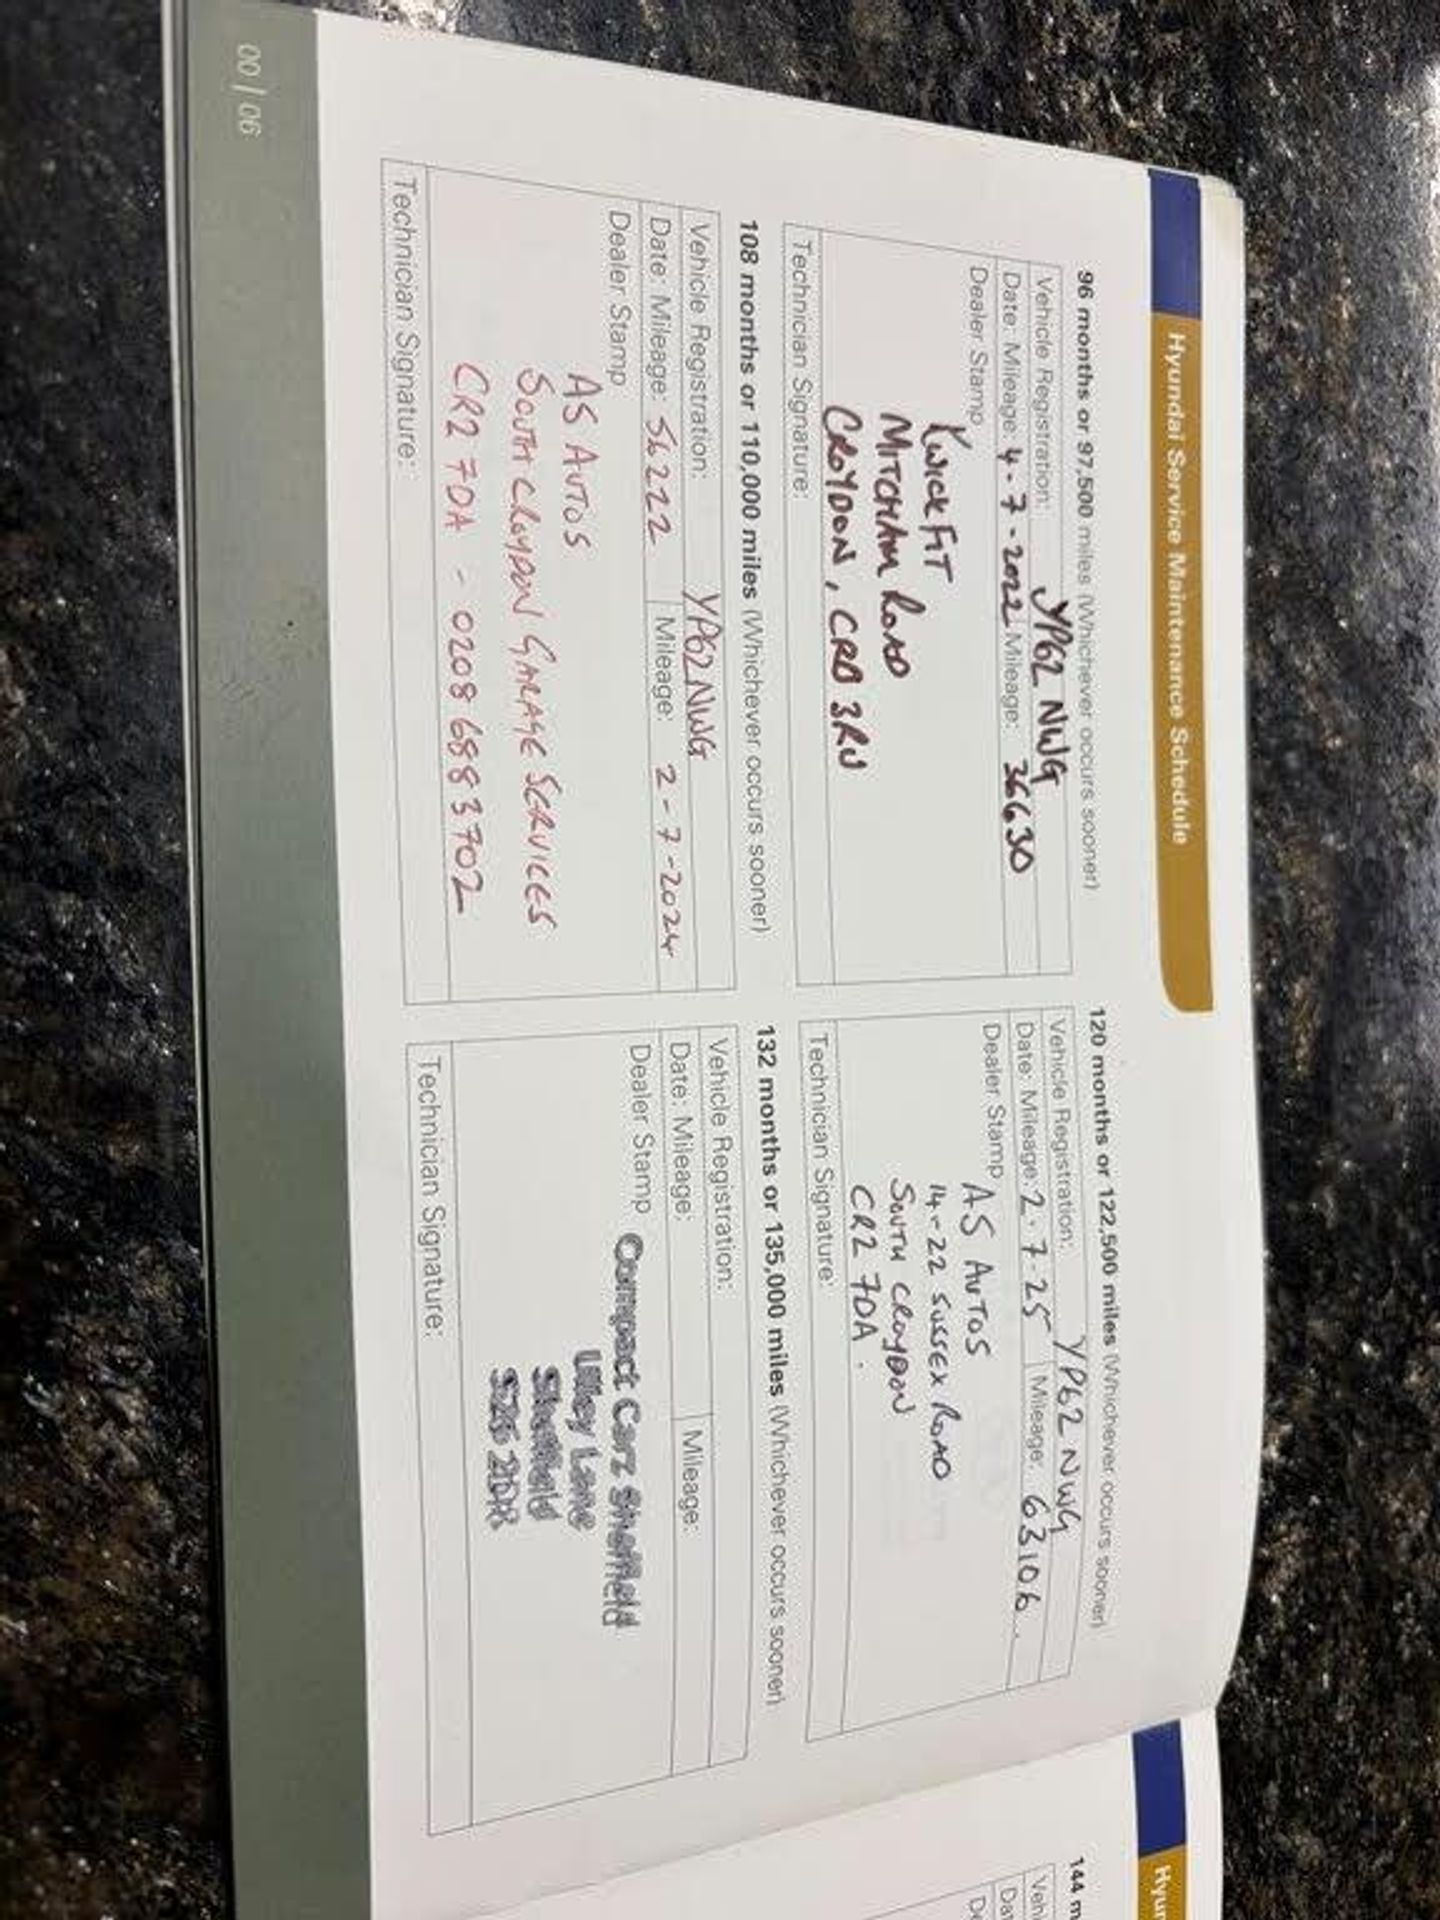 Hyundai Service Maintenance Schedule
96 months or 97,500 miles (Whichever occurs sooner)
Vehicle Registration: YP62 NWG
Date: Mileage: 4-7-2022 Mileage: 36630
Dealer Stamp
KwickFit
Mitcham Road
Croydon, CR0 3RU
Technician Signature:
108 months or 110,000 miles (Whichever occurs sooner)
Vehicle Registration: YP62NWG
Date: Mileage: 56222 Mileage: 2-7-2024
Dealer Stamp
AS Autos
South Croydon Garage Services
CR2 7DA - 0208 688 3702
Technician Signature:
120 months or 122,500 miles (Whichever occurs sooner)
Vehicle Registration: YP62 NWG
Date: Mileage: 2.7.25 Mileage: 63106..
Dealer Stamp
AS Autos
14-22 Sussex Road
South Croydon
CR2 7DA.
Technician Signature:
132 months or 135,000 miles (Whichever occurs sooner)
Vehicle Registration:
Date: Mileage: Mileage:
Dealer Stamp
Compact Carz Sheffield
Ulley Lane
Sheffield
Technician Signature:
00|06
Hyun
144 m
Vehi
Dat
De